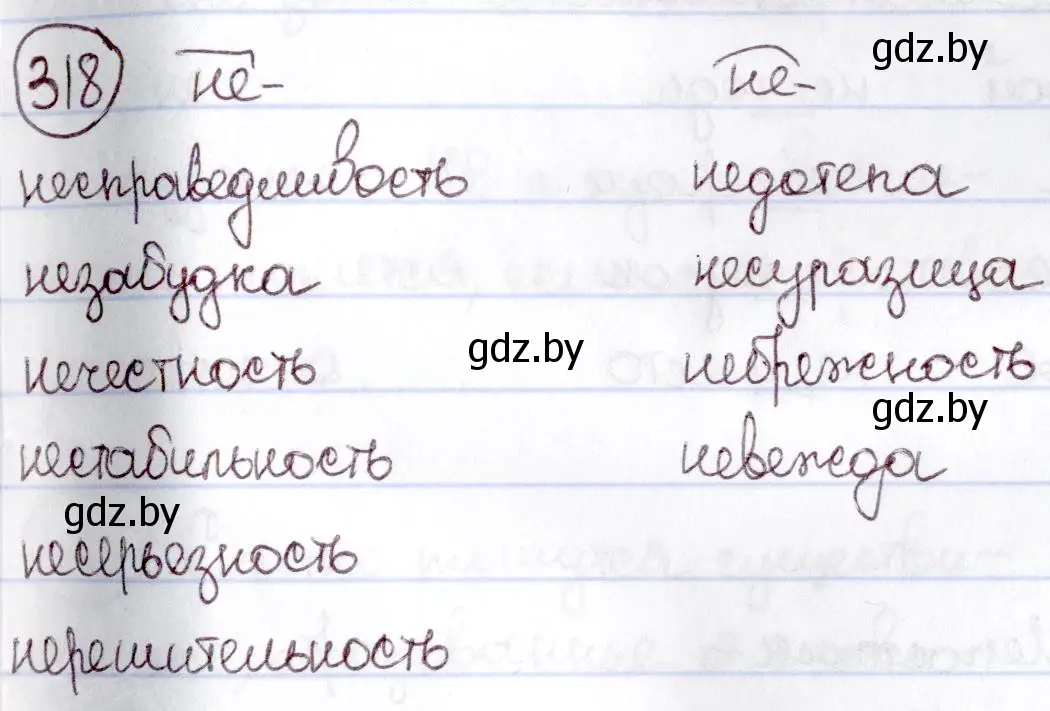 318 не- не- gdz.by
несправедливость недотепа
незабудка несуразица
gdz.by
нечестность небрежность
gdz.by
нестабильность невежда
gdz.by
несерьезность
нерешительность